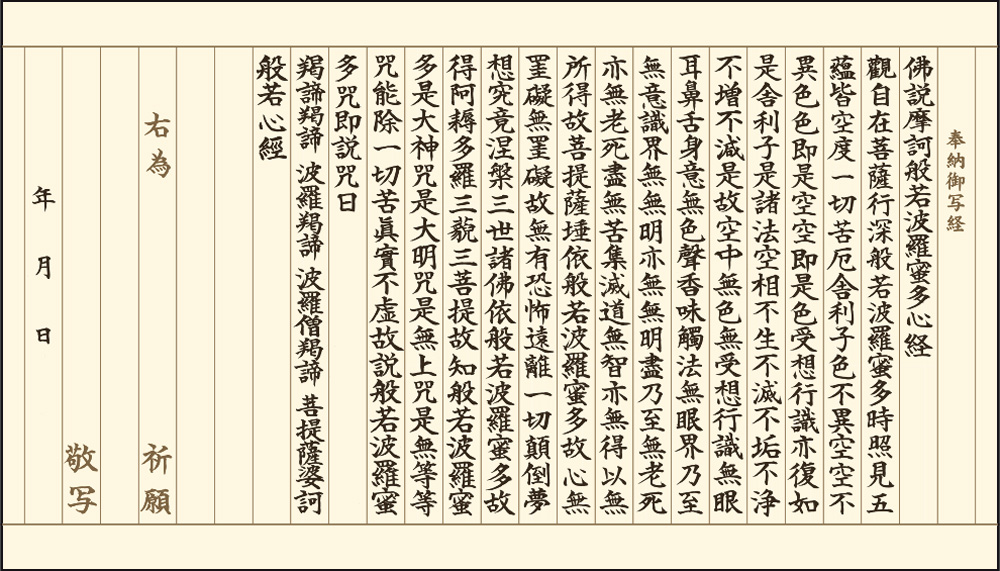 奉納御写経
佛説摩訶般若波羅蜜多心経
觀自在菩薩行深般若波羅蜜多時照見五
蘊皆空度一切苦厄舎利子色不異空空不
異色色即是空空即是色受想行識亦復如
是舎利子是諸法空相不生不滅不垢不浄
不増不減是故空中無色無受想行識無眼
耳鼻舌身意無色聲香味觸法無眼界乃至
無意識界無無明亦無無明盡乃至無老死
亦無老死盡無苦集滅道無智亦無得以無
所得故菩提薩埵依般若波羅蜜多故心無
罣礙無罣礙故無有恐怖遠離一切顛倒夢
想究竟涅槃三世諸佛依般若波羅蜜多故
得阿耨多羅三藐三菩提故知般若波羅蜜
多是大神咒是大明咒是無上咒是無等等
咒能除一切苦眞實不虚故説般若波羅蜜
多咒即説咒曰
羯諦羯諦 波羅羯諦 波羅僧羯諦 菩提薩婆訶
般若心經
右為 祈願
敬写
年 月 日